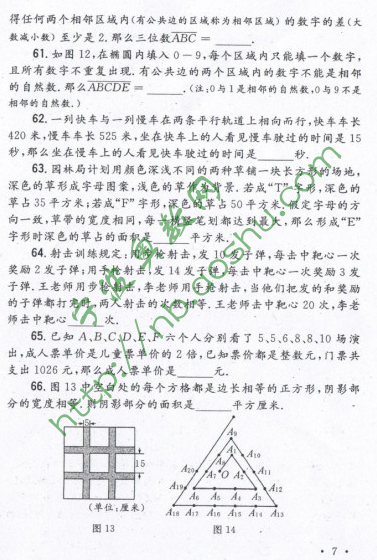 得任何两个相邻区域内(有公共边的区域称为相邻区域)的数字的差(大
数减小数)至少是2.那么三位数ABC=______.
61. 如图12,在椭圆内填入0-9,每个区域内只能填一个数字,
且所有数字不重复出现.有公共边的两个区域内的数字不能是相邻
的自然数.那么ABCDE=______.(注:0与1是相邻的自然数,0与9不是
相邻的自然数.)
62. 一列快车与一列慢车在两条平行轨道上相向而行,快车车长
420米,慢车车长525米,坐在快车上的人看见慢车驶过的时间是15
秒,那么坐在慢车上的人看见快车驶过的时间是______秒.
63. 园林局计划用颜色深浅不同的两种草铺一块长方形的场地,
深色的草形成字母图案,浅色的草作为背景.若成“T”字形,深色的
草占35平方米;若成“F”字形,深色的草占50平方米.假定字母的方
向一致,草带的宽度相同,每一横竖笔划都达到最大,那么形成“E”
字形时深色的草占的面积是______平方米.
64. 射击训练规定:用步枪射击,发10发子弹,每击中靶心一次
奖励2发子弹;用手枪射击,发14发子弹,每击中靶心一次奖励3发
子弹.王老师用步枪射击,李老师用手枪射击,当他们把发的和奖励
的子弹都打完时,两人射击的次数相等.王老师击中靶心20次,李老
师击中靶心______次.
65. 已知A、B、C、D、E、F六个人分别看了5、5、6、8、8、10场演
出,成人票单价是儿童票单价的2倍,已知票价都是整数元,门票共
支出1026元,那么成人票单价是______元.
66. 图13中空白处的每个方格都是边长相等的正方形,阴影部
分的宽度相等,则阴影部分的面积是______平方厘米.
5
15
(单位:厘米)
图13
A9
A1
A8
A10
A20
A7
O
A2
A11
A19
A6
A5
A4
A3
A12
A18
A17
A16
A15
A14
A13
图14
·7·
学而思教网
http://nb.aoshu.com